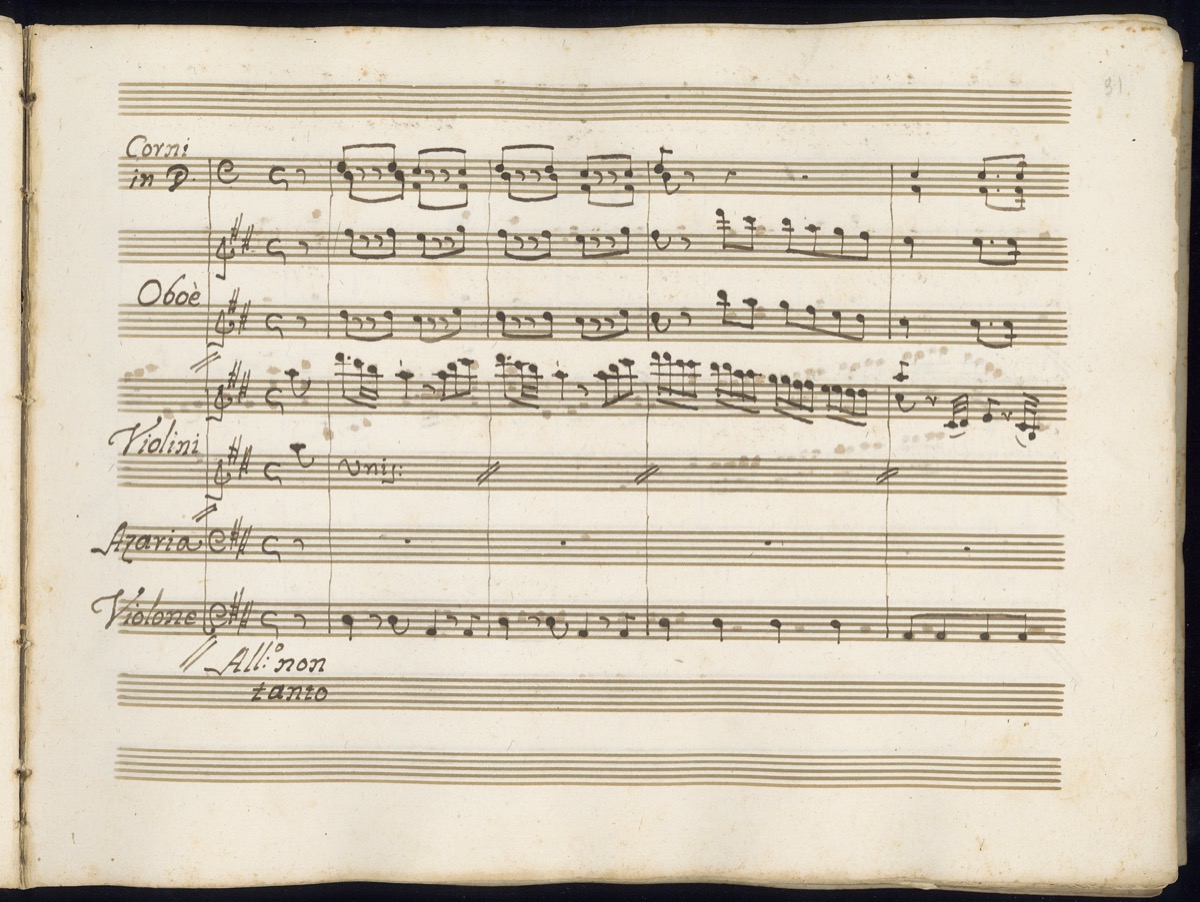 31.
Corni
in D.
Oboè
Violini
unis:
Azaria
Violone
All:º non
tanto